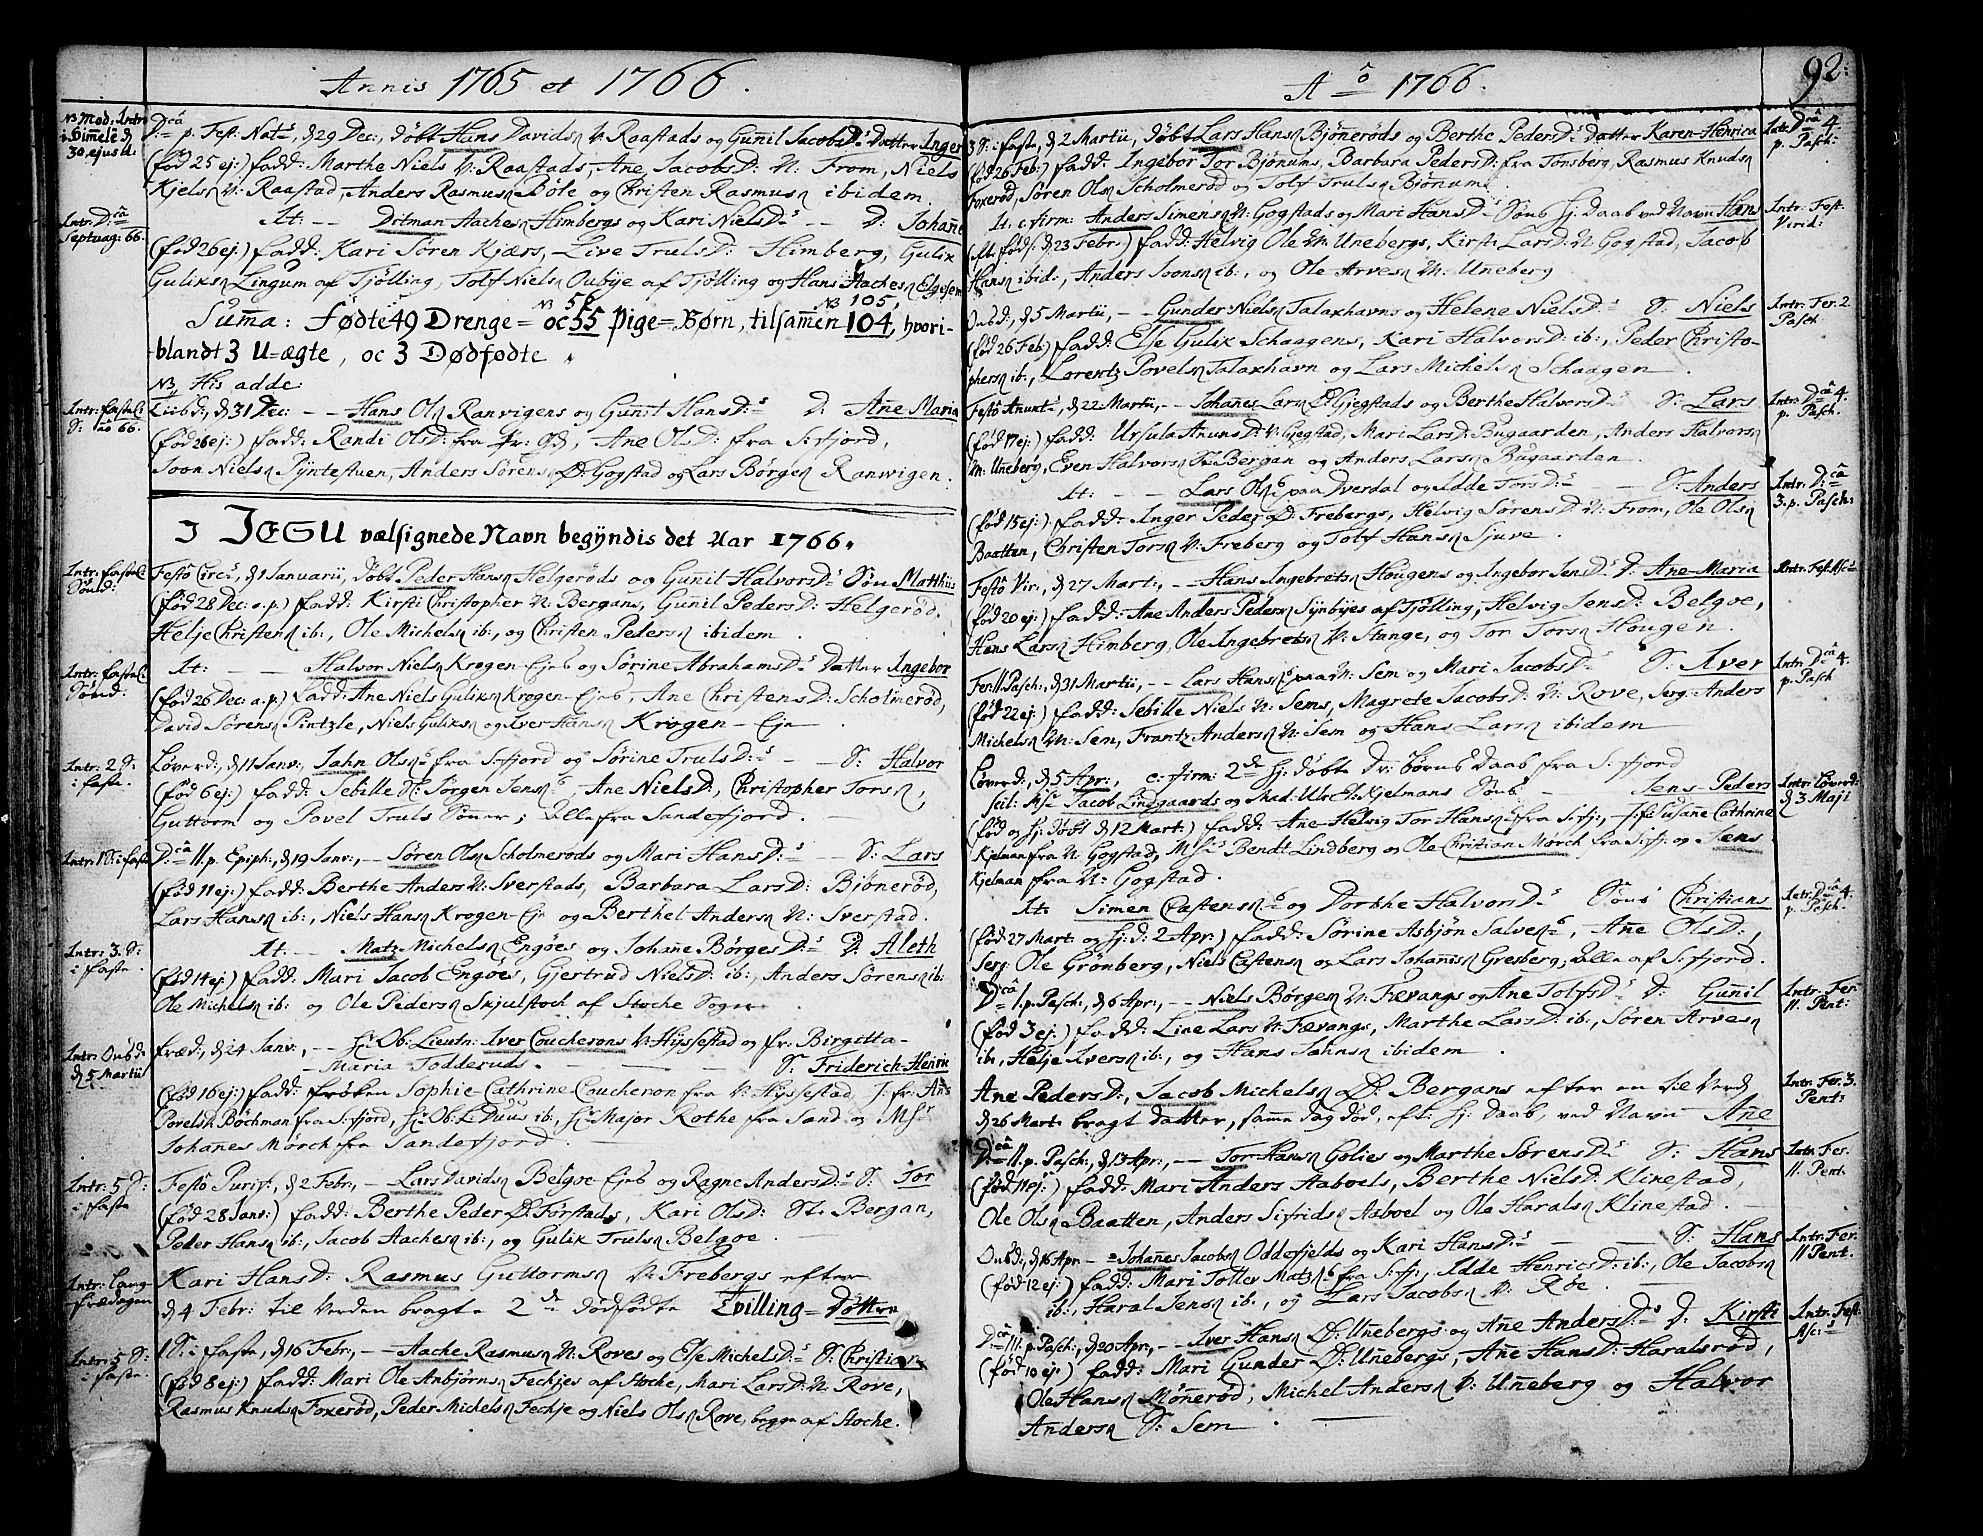 Annis 1765 et 1766.
NB Mod: Intro
i Himele d
30 ejusd:
D:câ p. Fest: Nat:s, d 29 Dec:, døbt Hans Davidsn V: Raastads og Gunnil Jacobs D:s Datter Inger
(fød 25 ej:) fadd: Marthe Niels V: Raastads, Ane Jacobs D: N: From, Niels
Kjelsn V: Raastad, Anders Rasmusn Bøle og Christen Rasmusn ibidem.
Intr: D:câ
Septuag: 66.
It: -- Ditman Aachesn Himbergs og Kari Niels D:s D: Johane
(fød 26 ej:) fadd: Kari Søren Kjærs, Live Truls D: Himberg, Gulik
Guliksn Lingum af Tjølling, Tolf Nielsn Oubye af Tjølling og Hans Aachesn Elgesem
NB 56 NB 105,
Suma: Fødte 49 Drenge= oc 55 Pige=Børn, tilsamen 104, hvori-
blandt 3 U=ægte, oc 3 Dødfødte.
NB His adde:
Intr: faste
S: ao 66.
d 31 Dec: -- Hans Olsn Ranvigens og Gunil Hans D:s D: Ane Maria
(fød 26 ej:) fadd: Randi Ols D: fra Ane Ols D: fra S:fjord,
Joon Nielsn Pyntestuen, Anders Sørensn Ø: Gogstad og Lars Børgesn Ranvigen.
I JESU velsignede Navn begyndis det Aar 1766.
Intr: faste
Sønd:
Festo Circ:s, d 1 Januarii, døbt Peder Hansn Helgerøds og Gunnil Halvors D:s Søn Matthis
(fød 28 Dec: a.p.) fadd: Kirsti Christopher N: Bergans, Gunil Peders D: Helgerød,
Helje Christensn ib:, Ole Michelsn ib:, og Christen Pedersn ibidem.
Intr: faste
Sønd:
It: -- Halvor Nielsn Krogen-Ejes og Sørine Abrahams D:s Datter Ingebor
(fød 26 Dec: a.p.) fadd: Ane Niels Guliksn Krogen-Ejes, Ane Christens D: Scholmerød,
David Sørensn Pintzle, Niels Guliksn og Iver Hansn Krogen-Eje.
Intr: 2 S:
i faste.
Løverd:, d 11 Janv:, Jahn Olsn fra S:fjord og Sørine Truls D:s -- S: Halvor
(fød 6 ej:) fadd: Sebille Jørgen Jensn, Ane Niels D:, Christopher Torsn,
Guttorm og Povel Truls Sønner; Alle fra Sandefjord.
Intr: 1 S: i faste
D:câ II. p. Epiph:, d 19 Janv:, -- Søren Olsn Scholmerøds og Mari Hans D:s S: Lars
(fød 11 ej:) fadd: Berthe Anders N: Sverstads, Barbara Lars D: Bjønerød,
Lars Hansn ib:, Niels Hansn Krogen-Eje og Berthel Andersn N: Sverstad.
Intr: 3. S:
i faste.
It: -- Matz Michelsn Engøes og Johane Børges D:s D: Aleth
(fød 14 ej:) fadd: Mari Jacob Engøes, Gjertrud Niels D: ib:, Anders Sørensn ib:
Ole Michelsn ib: og Ole Pedersn Skjulstoch af Stoche Sogn.
Intr: Onsd:
d 5 Martii
Fred:, d 24 Janv:, -- Hr Ob: Lieutn: Iver Coucherons V: Hyssestad og fr: Birgitta-
-Maria Todderuds. -- S: Friderich-Henric
(fød 16 ej:) fadd: Frøken Sophie Cathrine Coucheron fra V: Hyssestad, J:fr: An:
Povelsn Bøchman fra S:fjord, Hr Ob: L: Duus ib:, Hr Major Rothe fra Sand og Mr
Johanes Mørch fra Sandefjord.
Intr: 5 S:
i faste
Festo Purif:, d 2 Febr:, -- Lars Davidsn Belgoe Ejes og Ragne Anders D:s S: Tor
(fød 28 Janv:) fadd: Berthe Peder Ø: Førstads, Kari Ols D: St. Bergan,
Peder Hansn ib:, Jacob Aachesn ib:, og Gulik Trulsn Belgoe.
Intr: Lang-
fredagen
Kari Hans D: Rasmus Guttormsn V: Frebergs efter
d 4 Febr: til Verden bragte 2de dødfødte Tvilling=Døttre
Intr: 5 S:
i faste.
1 S: i faste, d 16 Febr:, -- Aache Rasmusn N: Roves og Else Michels D:s S: Christian
(fød 8 ej:) fadd: Mari Ole Anbjørns Fechjes af Stoche, Mari Lars D: N: Rove,
Rasmus Knudsn Foxerød, Peder Michelsn Fechje og Niels Olsn Rove, begge af Stoche.
Ao 1766.
92:
3 S: i faste, d 2 Martii, døbt Lars Hansn Bjønerøds og Berthe Peders D:s Datter Karen-Henrica
(fød 26 Feb:) fadd: Ingebor Tor Bjønums, Barbara Peders D: fra Tonsberg, Rasmus Knudsn
Foxerød, Søren Olsn Scholmerød og Tolf Trulsn Bjønum.
Intr: D:câ 4
p. Pasch:
It. c.firm: Anders Simensn N: Gogstads og Mari Hans D:s Søns hj: Daab ved Navn Hans
(fød d 23 Febr:) fadd: Helvig Ole M: Unebergs, Kirsti Lars D: N: Gogstad, Jacob
Hansn ibid:, Anders Joonsn ib:, og Ole Arvesn N: Uneberg
Intr: Fest:
Virid:
Onsd:, d 5 Martii, -- Gunder Nielsn Talaxhavns og Helene Niels D:s S: Niels
(fød 26 Feb) fadd: Else Gulik Schaagens, Kari Halvors D: ib:, Peder Christo-
phersn ib:, Lorentz Povelsn Talaxhavn og Lars Michelsn Schaagen
Intr: Fer: 2
Pasch
Festo Anunt:s, d 22 Martii, -- Johanes Larsn Ø: Gogstads og Berthe Halvors D:s S: Lars
(fød 17 ej:) fadd: Ursula Anuns D: V: Gogstad, Mari Lars D: Bugaarden, Anders Halvorsn
M: Uneberg, Even Halvorsn St. Bergan og Anders Larsn Bugaarden.
Intr: D:câ 4.
p. Pasch.
It: -- Lars Olsn paa Dverdal og Idde Tors D:s -- S: Anders
(fød 15 ej:) fadd: Inger Peder Ø: Frebergs, Helvig Sørens D: N: From, Ole Olsn
Baatten, Christen Torsn N: Freberg og Tolf Hansn Sjuve.
Intr: D:câ
3. p. Pasch:
Festo Vir:, d 27 Mart:, -- Hans Ingebretsn Hougens og Ingebor Jens D:s D: Ane-Maria
(fød 20 ej:) fadd: Ane Anders Pedersn Synbyes af Tjølling, Helvig Jens D: Belgoe,
Hans Larsn Himberg, Ole Ingebretsn V: Stange, og Tor Torsn Hougen.
Intr: Fest: Asc:s
Fer: II. Pasch:, d 31 Martii, -- Lars Hansn paa N: Sem og Mari Jacobs D:s S: Iver
(fød 22 ej:) fadd: Sebille Niels N: Sems, Magrete Jacobs D: N: Rove, Serg: Anders
Michelsn N: Sem, Frantz Andersn N: Sem og Hans Larsn ibidem
Intr: D:câ 4.
p. Pasch
Løverd:, d 5 Apr:, c.firm: 2de hj: døbte Dr: Børns Daab fra S:fjord
scil: Mr Jacob Lindgaards og Mad: Ulr: El: Kjelmans Søns -- Jens-Peders
(fød og hj: døbt d 12 Mart:) fadd: Ane-Helvig Tor Hansn fra S:fj:, J:fr Susane Cathrine
Kjelman fra N: Gogstad, Mr Bendt Lindberg og Ole Christian Mørch fra S:fj: og Jens
Kjelman fra N: Gogstad.
Intr: Løverd:
d 3 Maji
It: Simen Castensn og Dorthe Halvors D:s Søns Christians
(fød 27 Mart. og hj: d: 2 Apr:) fadd: Sørine Asbjøn Salvesn, Ane Ols D:,
Serg: Ole Grønberg, Niels Castensn og Lars Johanisn Gresberg; Alle af S:fjord.
Intr: D:câ 4.
p. Pasch.
D:câ I. p. Pasch:, d 6 Apr:, -- Niels Børgesn V: Fævangs og Ane Tolfs D:s D: Gunil
(fød 3 ej:) fadd: Line Lars N: Fævangs, Marthe Lars D: ib:, Søren Arvesn
ib:, Helje Iversn ib:, og Hans Jahnsn ibidem.
Intr: Fer
II. Pent:
Ane Peders D:, Jacob Michelsn Ø: Bergans efter en til Verd:
d 26 Mart. bragt datter, same dag død, eft: hj: Daab, ved Navn Ane
Intr: Fer: 3.
Pent:
D:câ II. p. Pasch:, d 13 Apr:, -- Tor Hansn Golies og Marthe Sørens D:s S: Hans
(fød 11 ej:) fadd: Mari Anders Aaboels, Berthe Niels D: Klinestad,
Ole Olsn Baatten, Anders Sifridsn Aaboel og Ola Haralsn Klinestad.
Intr: Fer.
II. Pent.
Onsd:, d 16 Apr -- Johanes Jacobsn Oddefjelds og Kari Hans D:s -- S: Hans
(fød 12 ej:) fadd: Mari Tolles Matzsn fra S:fj:, Idde Henrics D: ib:, Ole Jacobsn
ib:, Haral Jensn ib:, og Lars Jacobsn V: Røe.
Intr: Fer:
II Pent.
D:câ III. p. Pasch:, d 20 Apr:, -- Iver Hansn Ø: Unebergs og Ane Anders D:s D: Kirsti
(fød 10 ej:) fadd: Mari Gunder Ø: Unebergs, Ane Hans D: Haralsrød,
Ole Hansn Mønerød, Michel Andersn V: Uneberg og Halvor
Andersn S: Sem.
Intr: Fest:
Asc:s